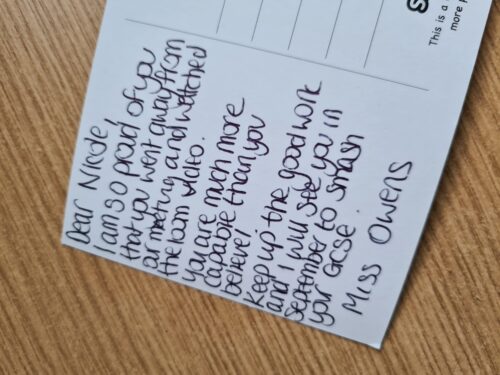 Dear Nicole,
I am so proud of you
that you went away from
our meeting and watched
the loom video.
You are much more
capable than you
believe!
Keep up the good work
and I will see you in
September to smash
your GCSE.
Miss Owens
This is a
more